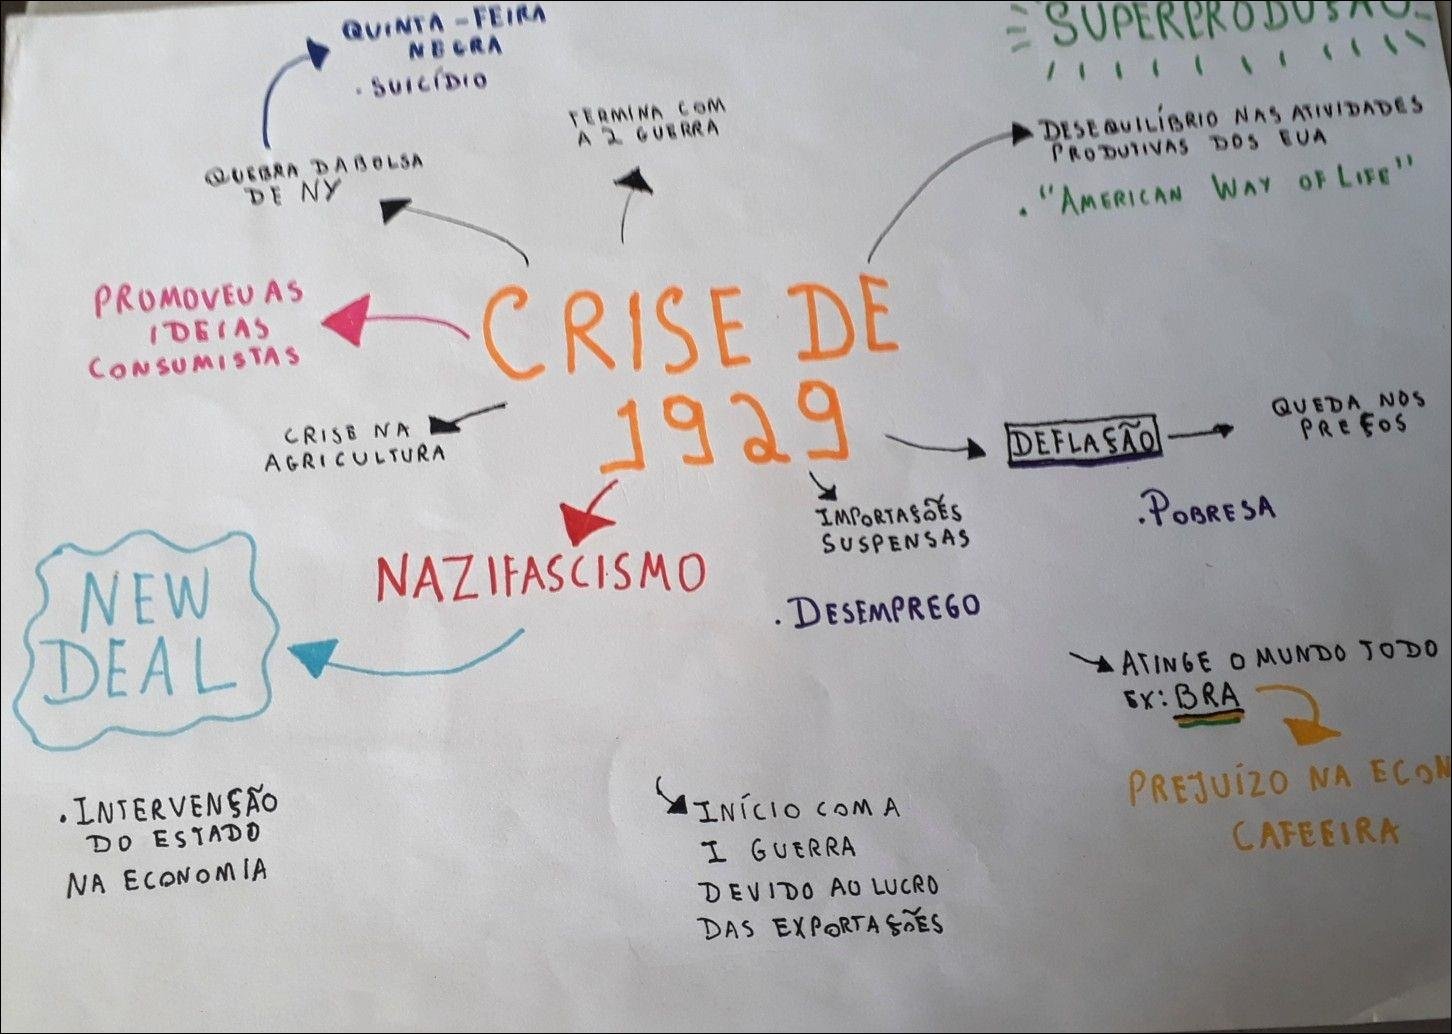 QUINTA-FEIRA
NEGRA
.SUICÍDIO
SUPERPRODUSÃO
TERMINA COM
A 2 GUERRA
DESEQUILÍBRIO NAS ATIVIDADES
PRODUTIVAS DOS EUA
."AMERICAN WAY OF LIFE"
QUEBRA DA BOLSA
DE NY
CRISE DE
1929
PROMOVEU AS
IDEIAS
CONSUMISTAS
CRISE NA
AGRICULTURA
DEFLAÇÃO
QUEDA NOS
PREÇOS
.POBRESA
IMPORTAÇÕES
SUSPENSAS
.DESEMPREGO
NAZIFASCISMO
NEW
DEAL
.INTERVENÇÃO
DO ESTADO
NA ECONOMIA
ATINGE O MUNDO TODO
EX: BRA
PREJUÍZO NA ECON
CAFEEIRA
INÍCIO COM A
I GUERRA
DEVIDO AO LUCRO
DAS EXPORTAÇÕES